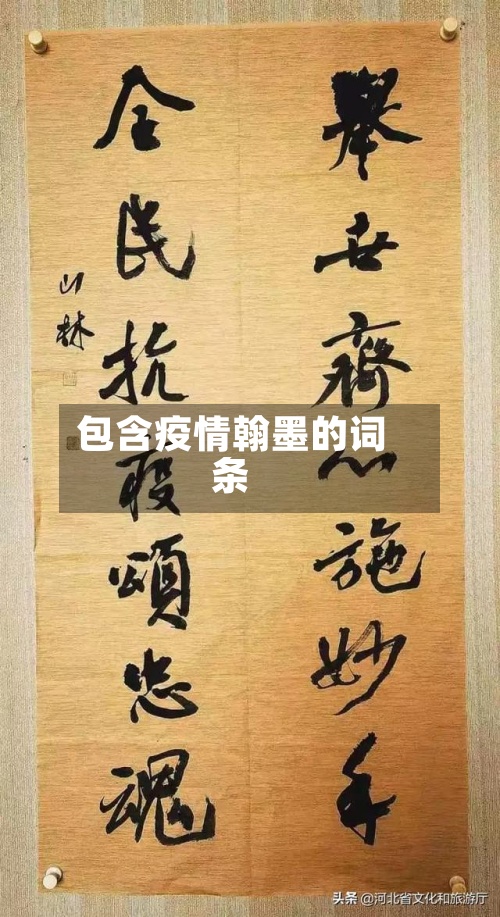 舉世齊心施妙手
全民抗疫頌忠魂
山林
包含疫情翰墨的词
条
头条 @河北省文化和旅游厅